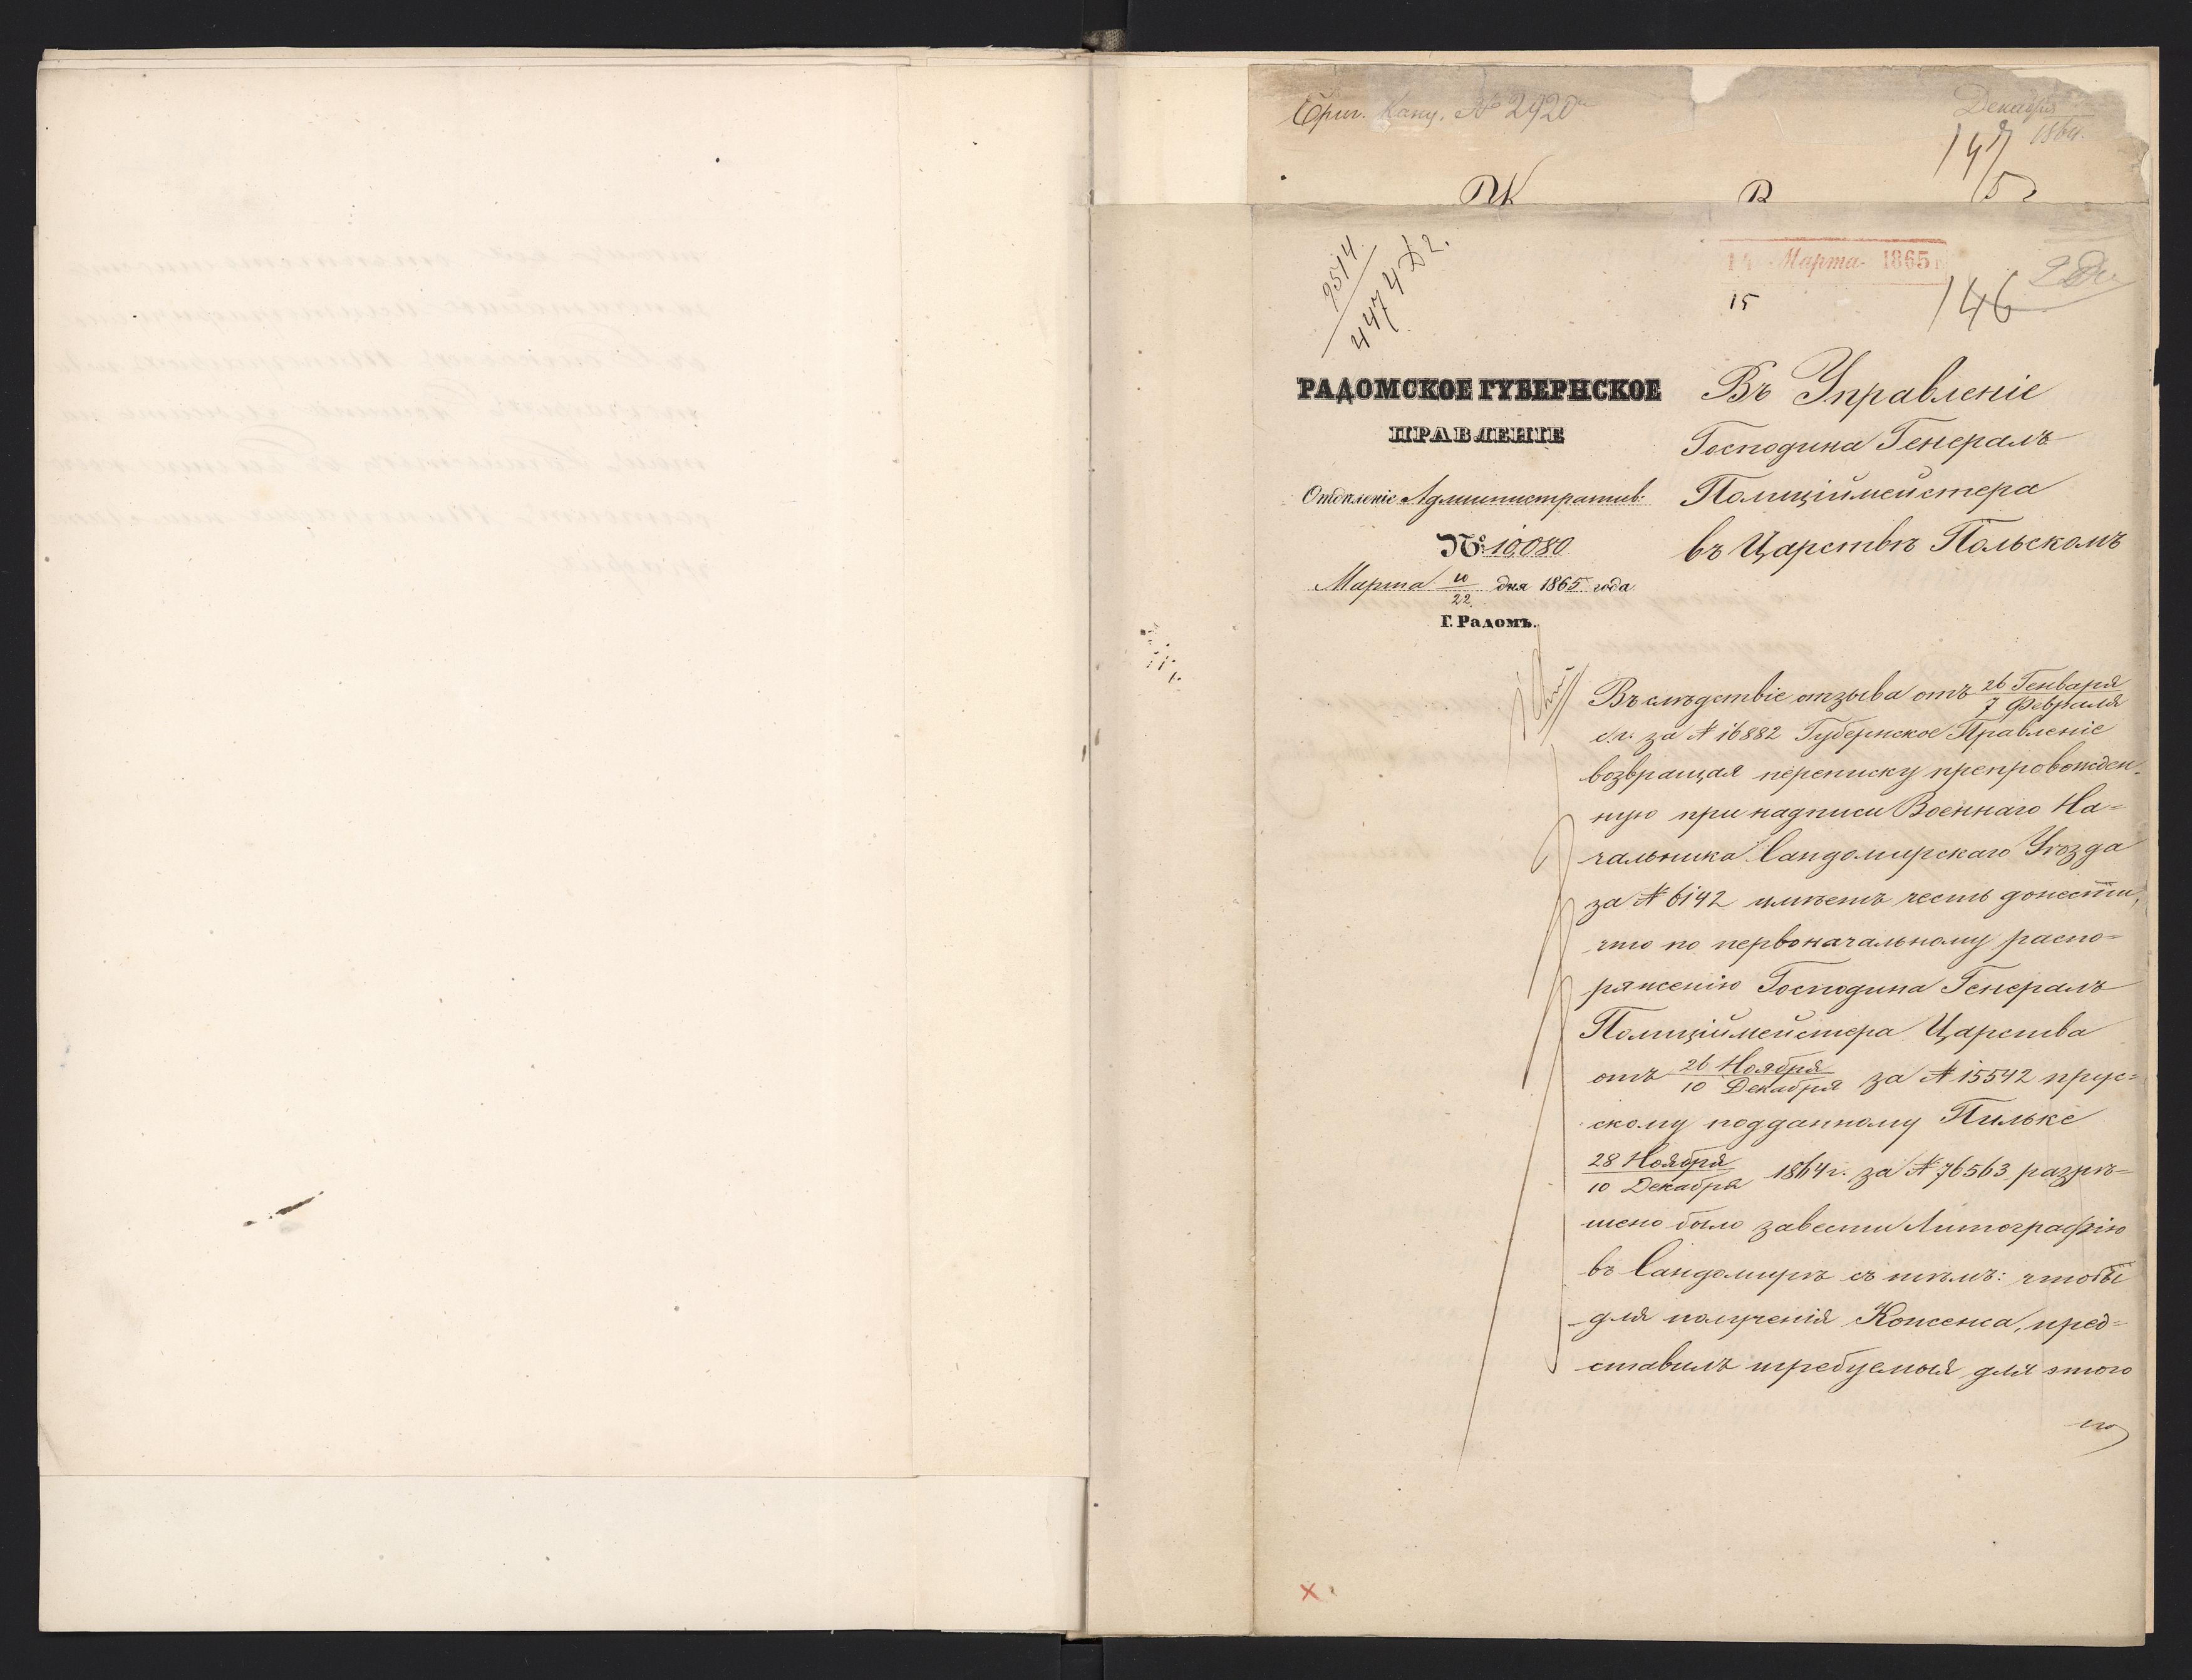 Ориг. Канц. № 2920
Декабря
1864.
147
9514
447 4 Д 2.
14 Марта 1865
15
146
РАДОМСКОЕ ГУБЕРНСКОЕ
ПРАВЛЕНІЕ
Отдѣленіе Административ:
№ 10080
Марта 10/22 дня 1865 года
Г. Радомъ.
Въ Управленіе
Господина Генералъ
Полиціймейстера
въ Царствѣ Польскомъ
Въ слѣдствіе отзыва отъ 26 Генваря / 7 Февраля
с.г. за № 16882 Губернское Правленіе
возвращая переписку препровожден-
ную при надписи Военнаго На=
чальника Сандомирскаго Уѣзда
за № 6142 имѣетъ честь донести,
что по первоначальному распо=
ряженію Господина Генералъ
Полиціймейстера Царства
отъ 26 Ноября / 10 Декабря за № 15542 прус=
скому подданному Пильке
28 Ноября / 10 Декабря 1864 г. за № 76563 разрѣ=
шено было завести Литографію
въ Сандомирѣ съ тѣмъ: чтобы
для полученія Консенса, пред=
ставилъ требуемыя для этого